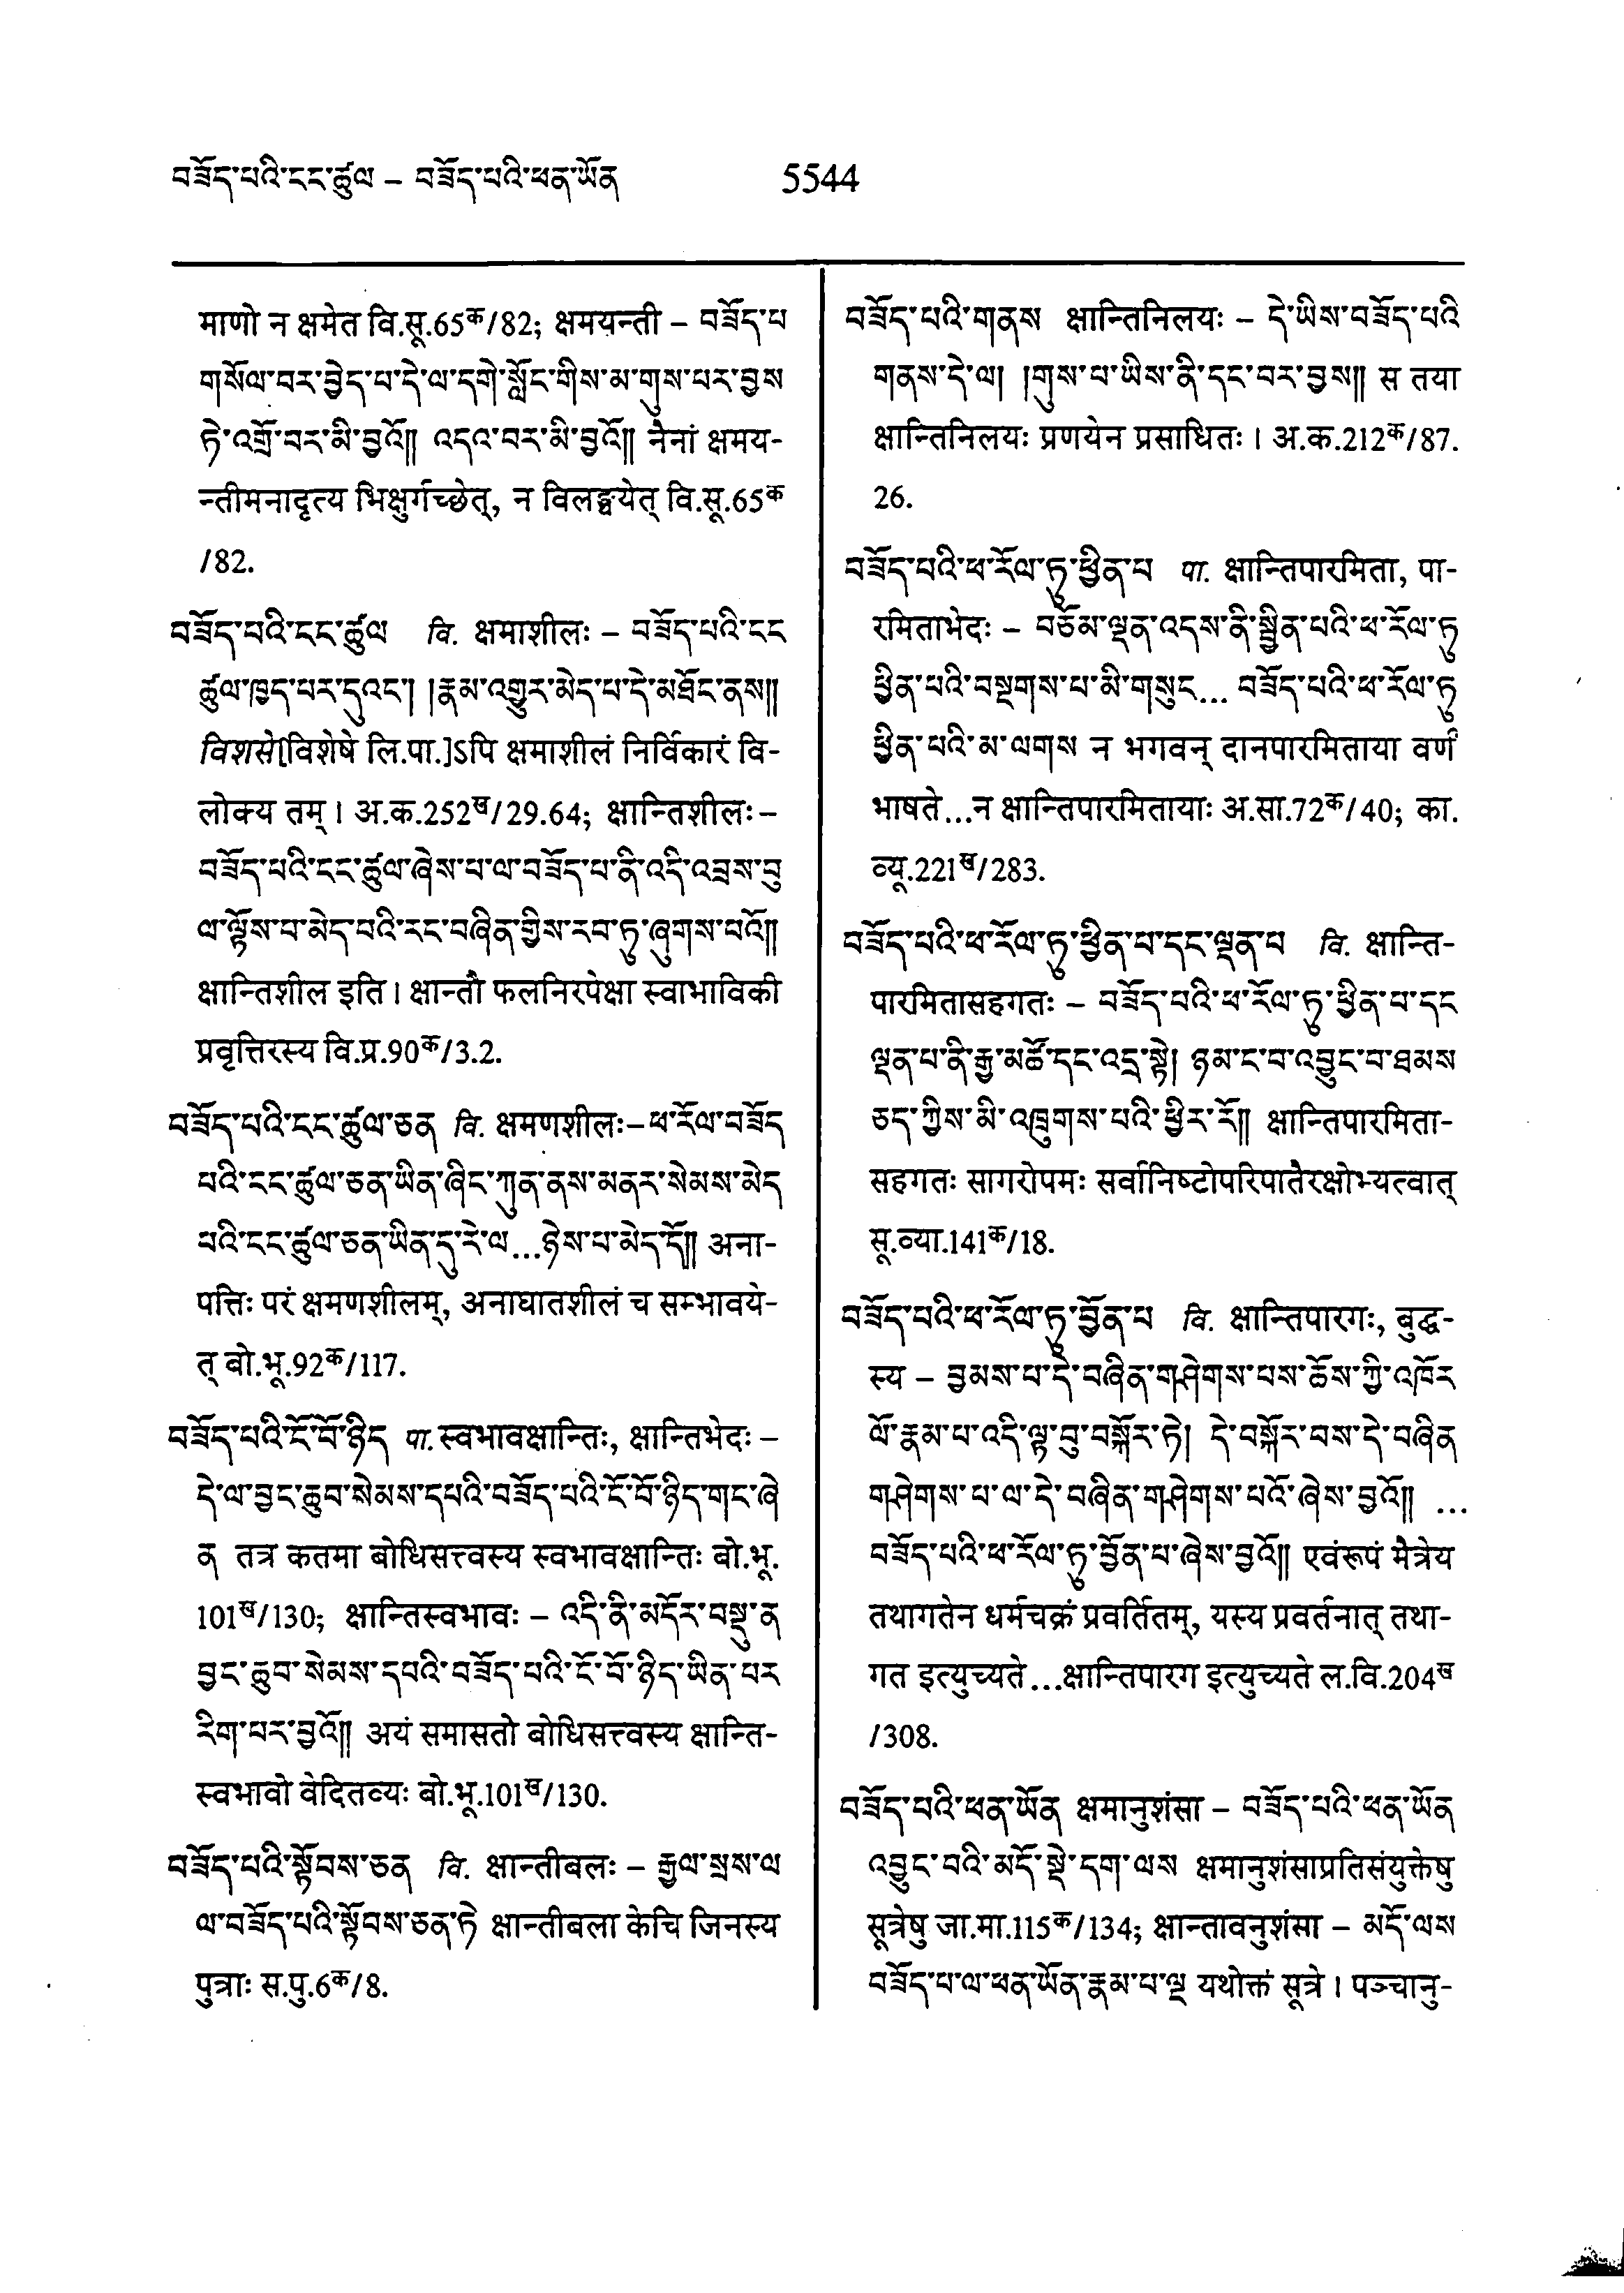 བཟོད་པའི་ངང་ཚུལ – བཟོད་པའི་ཕན་ཡོན
5544
माणो न क्षमेत वि.सू.65क/82; क्षमयन्ती – བཟོད་པ
གསོལ་བར་བྱེད་པ་དེ་ལ་དགེ་སློང་གིས་མ་གུས་པར་བྱས
ཏེ་འགྲོ་བར་མི་བྱའོ།། འདའ་བར་མི་བྱའོ།། नैनां क्षमय-
न्तीमनादृत्य भिक्षुर्गच्छेत्, न विलङ्घयेत् वि.सू.65क
/82.
བཟོད་པའི་ངང་ཚུལ वि. क्षमाशीलः – བཟོད་པའི་ངང
ཚུལ་ཁྱད་པར་དུའང་། །རྣམ་འགྱུར་མེད་པ་དེ་མཐོང་ནས།།
विशसे[विशेषे लि.पा.]ऽपि क्षमाशीलं निर्विकारं वि-
लोक्य तम्। अ.क.252ख/29.64; क्षान्तिशीलः –
བཟོད་པའི་ངང་ཚུལ་ཞེས་པ་ལ་བཟོད་པ་ནི་འདི་འབྲས་བུ
ལ་ལྟོས་པ་མེད་པའི་རང་བཞིན་གྱིས་རབ་ཏུ་ཞུགས་པའོ།།
क्षान्तिशील इति। क्षान्तौ फलनिरपेक्षा स्वाभाविकी
प्रवृत्तिरस्य वि.प्र.90क/3.2.
བཟོད་པའི་ངང་ཚུལ་ཅན वि. क्षमणशीलः – ཕ་རོལ་བཟོད
པའི་ངང་ཚུལ་ཅན་ཡིན་ཞིང་ཀུན་ནས་མནར་སེམས་མེད
པའི་ངང་ཚུལ་ཅན་ཡིན་དུ་རེ་ལ...ཉེས་པ་མེད་དོ།། अना-
पत्तिः परं क्षमणशीलम्, अनाघातशीलं च सम्भावये-
त् बो.भू.92क/117.
བཟོད་པའི་ངོ་བོ་ཉིད पा. स्वभावक्षान्तिः, क्षान्तिभेदः –
དེ་ལ་བྱང་ཆུབ་སེམས་དཔའི་བཟོད་པའི་ངོ་བོ་ཉིད་གང་ཞེ
ན तत्र कतमा बोधिसत्त्वस्य स्वभावक्षान्तिः बो.भू.
101ख/130; क्षान्तिस्वभावः – འདི་ནི་མདོར་བསྡུ་ན
བྱང་ཆུབ་སེམས་དཔའི་བཟོད་པའི་ངོ་བོ་ཉིད་ཡིན་པར
རིག་པར་བྱའོ།། अयं समासतो बोधिसत्त्वस्य क्षान्ति-
स्वभावो वेदितव्यः बो.भू.101ख/130.
བཟོད་པའི་སྟོབས་ཅན वि. क्षान्तीबलः – རྒྱལ་སྲས་ལ
ལ་བཟོད་པའི་སྟོབས་ཅན་ཏེ क्षान्तीबला केचि जिनस्य
पुत्राः स.पु.6क/8.
བཟོད་པའི་གནས क्षान्तिनिलयः – དེ་ཡིས་བཟོད་པའི
གནས་དེ་ལ། །གུས་པ་ཡིས་ནི་དང་བར་བྱས།། स तया
क्षान्तिनिलयः प्रणयेन प्रसाधितः। अ.क.212क/87.
26.
བཟོད་པའི་ཕ་རོལ་ཏུ་ཕྱིན་པ पा. क्षान्तिपारमिता, पा-
रमिताभेदः – བཅོམ་ལྡན་འདས་ནི་སྦྱིན་པའི་ཕ་རོལ་ཏུ
ཕྱིན་པའི་བསྔགས་པ་མི་གསུང... བཟོད་པའི་ཕ་རོལ་ཏུ
ཕྱིན་པའི་མ་ལགས न भगवन् दानपारमिताया वर्णं
भाषते...न क्षान्तिपारमितायाः अ.सा.72क/40; का.
व्यू.221ख/283.
བཟོད་པའི་ཕ་རོལ་ཏུ་ཕྱིན་པ་དང་ལྡན་པ वि. क्षान्ति-
पारमितासहगतः – བཟོད་པའི་ཕ་རོལ་ཏུ་ཕྱིན་པ་དང
ལྡན་པ་ནི་རྒྱ་མཚོ་དང་འདྲ་སྟེ། ཉམ་ང་བ་འབྱུང་བ་ཐམས
ཅད་ཀྱིས་མི་འཁྲུགས་པའི་ཕྱིར་རོ།། क्षान्तिपारमिता-
सहगतः सागरोपमः सर्वानिष्टोपरिपातैरक्षोभ्यत्वात्
सू.व्या.141क/18.
བཟོད་པའི་ཕ་རོལ་ཏུ་བྱོན་པ वि. क्षान्तिपारगः, बुद्ध-
स्य – བྱམས་པ་དེ་བཞིན་གཤེགས་པས་ཆོས་ཀྱི་འཁོར
ལོ་རྣམ་པ་འདི་ལྟ་བུ་བསྐོར་ཏེ། དེ་བསྐོར་བས་དེ་བཞིན
གཤེགས་པ་ལ་དེ་བཞིན་གཤེགས་པའོ་ཞེས་བྱའོ།། ...
བཟོད་པའི་ཕ་རོལ་ཏུ་བྱོན་པ་ཞེས་བྱའོ།། एवंरूपं मैत्रेय
तथागतेन धर्मचक्रं प्रवर्तितम्, यस्य प्रवर्तनात् तथा-
गत इत्युच्यते...क्षान्तिपारग इत्युच्यते ल.वि.204ख
/308.
བཟོད་པའི་ཕན་ཡོན क्षमानुशंसा – བཟོད་པའི་ཕན་ཡོན
འབྱུང་བའི་མདོ་སྡེ་དག་ལས क्षमानुशंसाप्रतिसंयुक्तेषु
सूत्रेषु जा.मा.115क/134; क्षान्तावनुशंसा – མདོ་ལས
བཟོད་པ་ལ་ཕན་ཡོན་རྣམ་པ་ལྔ यथोक्तं सूत्रे। पञ्चानु-